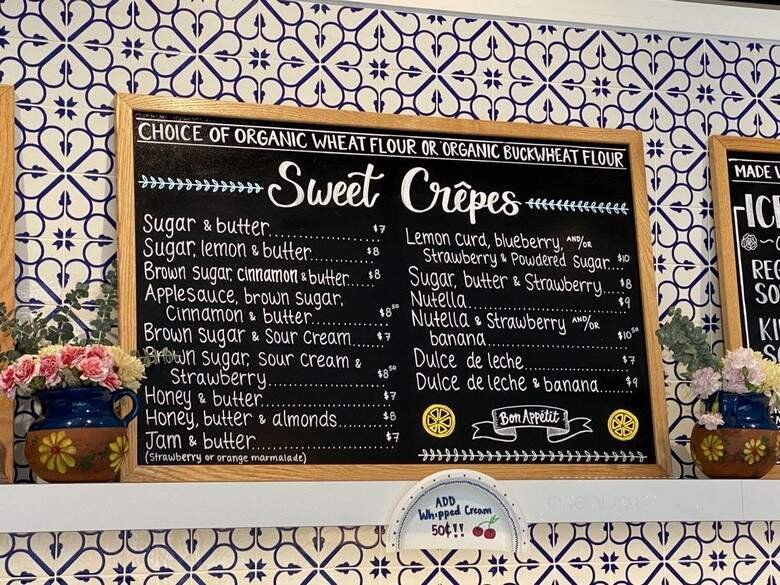 CHOICE OF ORGANIC WHEAT FLOUR OR ORGANIC BUCKWHEAT FLOUR
Sweet Crêpes
Sugar & butter $7
Sugar, lemon & butter $8
Brown sugar, cinnamon & butter $8
Applesauce, brown sugar,
Cinnamon & butter $8.50
Brown sugar & Sour Cream $7
Brown sugar, sour cream &
Strawberry $8.50
Honey & butter $7
Honey, butter & almonds $8
Jam & butter $7
(Strawberry or orange marmalade)
Lemon curd, blueberry, AND/OR
Strawberry & Powdered Sugar $10
Sugar, butter & Strawberry $8
Nutella $9
Nutella & Strawberry AND/OR
banana $10.50
Dulce de leche $7
Dulce de leche & banana $9
Bon Appétit
ADD
Whipped Cream
50¢!!
MADE